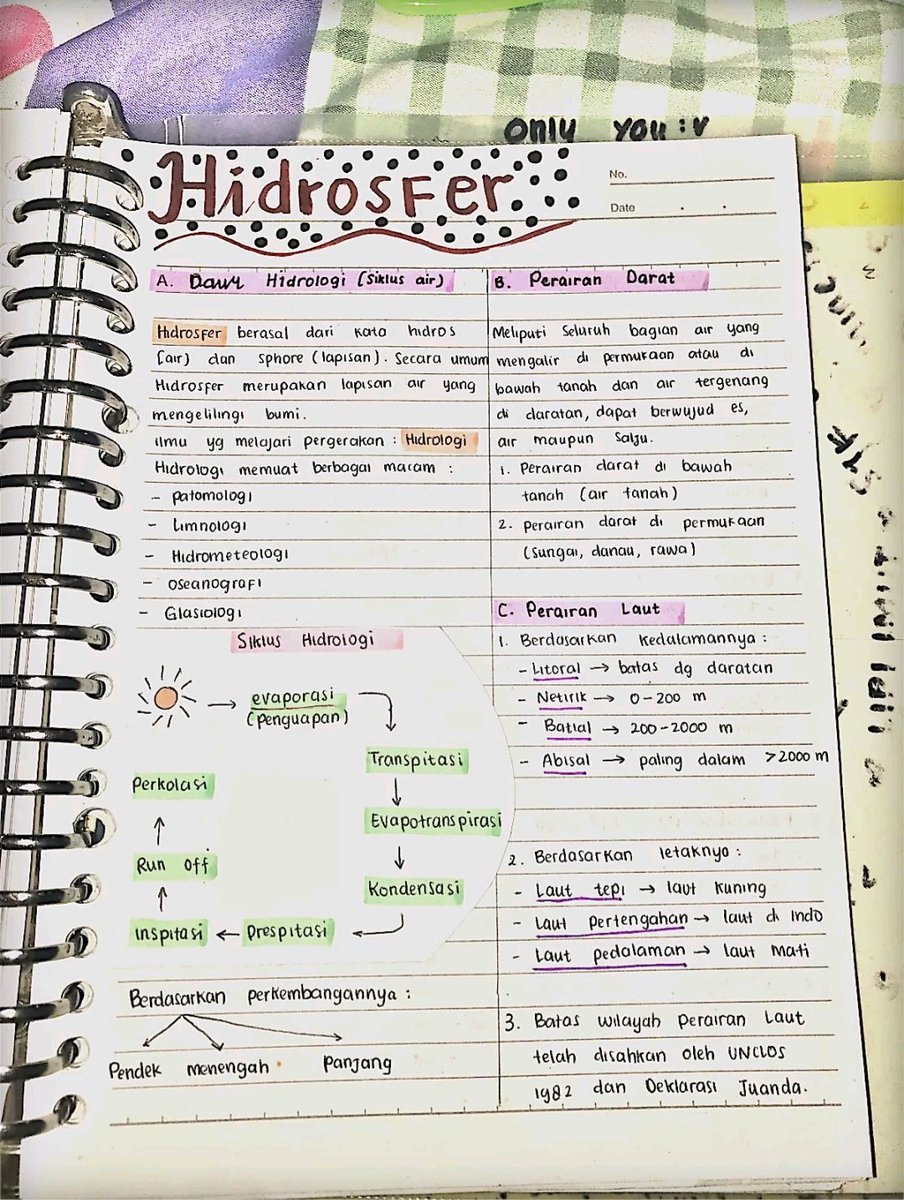 only you :v
Hidrosfer
No.
Date
A. Daur Hidrologi (Siklus air)
Hidrosfer berasal dari kata hidros
(air) dan sphore (lapisan). Secara umum
Hidrosfer merupakan lapisan air yang
mengelilingi bumi.
ilmu yg melajari pergerakan : Hidrologi
Hidrologi memuat berbagai macam :
- patomologi
- Limnologi
- Hidrometeologi
- oseanografi
- Glasiologi
Siklus Hidrologi
evaporasi
(penguapan)
Transpitasi
Evapotranspirasi
Kondensasi
Prespitasi
Inspitasi
Run Off
Perkolasi
Berdasarkan perkembangannya :
Pendek menengah panjang
B. Perairan Darat
Meliputi Seluruh bagian air yang
mengalir di permukaan atau di
bawah tanah dan air tergenang
di daratan, dapat berwujud es,
air maupun Salju.
1. Perairan darat di bawah
tanah (air tanah)
2. perairan darat di permukaan
(sungai, danau, rawa)
C. Perairan Laut
1. Berdasarkan kedalamannya :
- Litoral → batas dg daratan
- Netirik → 0-200 m
- Batial → 200-2000 m
- Abisal → paling dalam >2000 m
2. Berdasarkan letaknyo :
- Laut tepi → laut kuning
- Laut pertengahan → laut di Indo
- Laut pedalaman → laut mati
3. Batas wilayah perairan Laut
telah disahkan oleh UNCLOS
1982 dan Deklarasi Juanda.